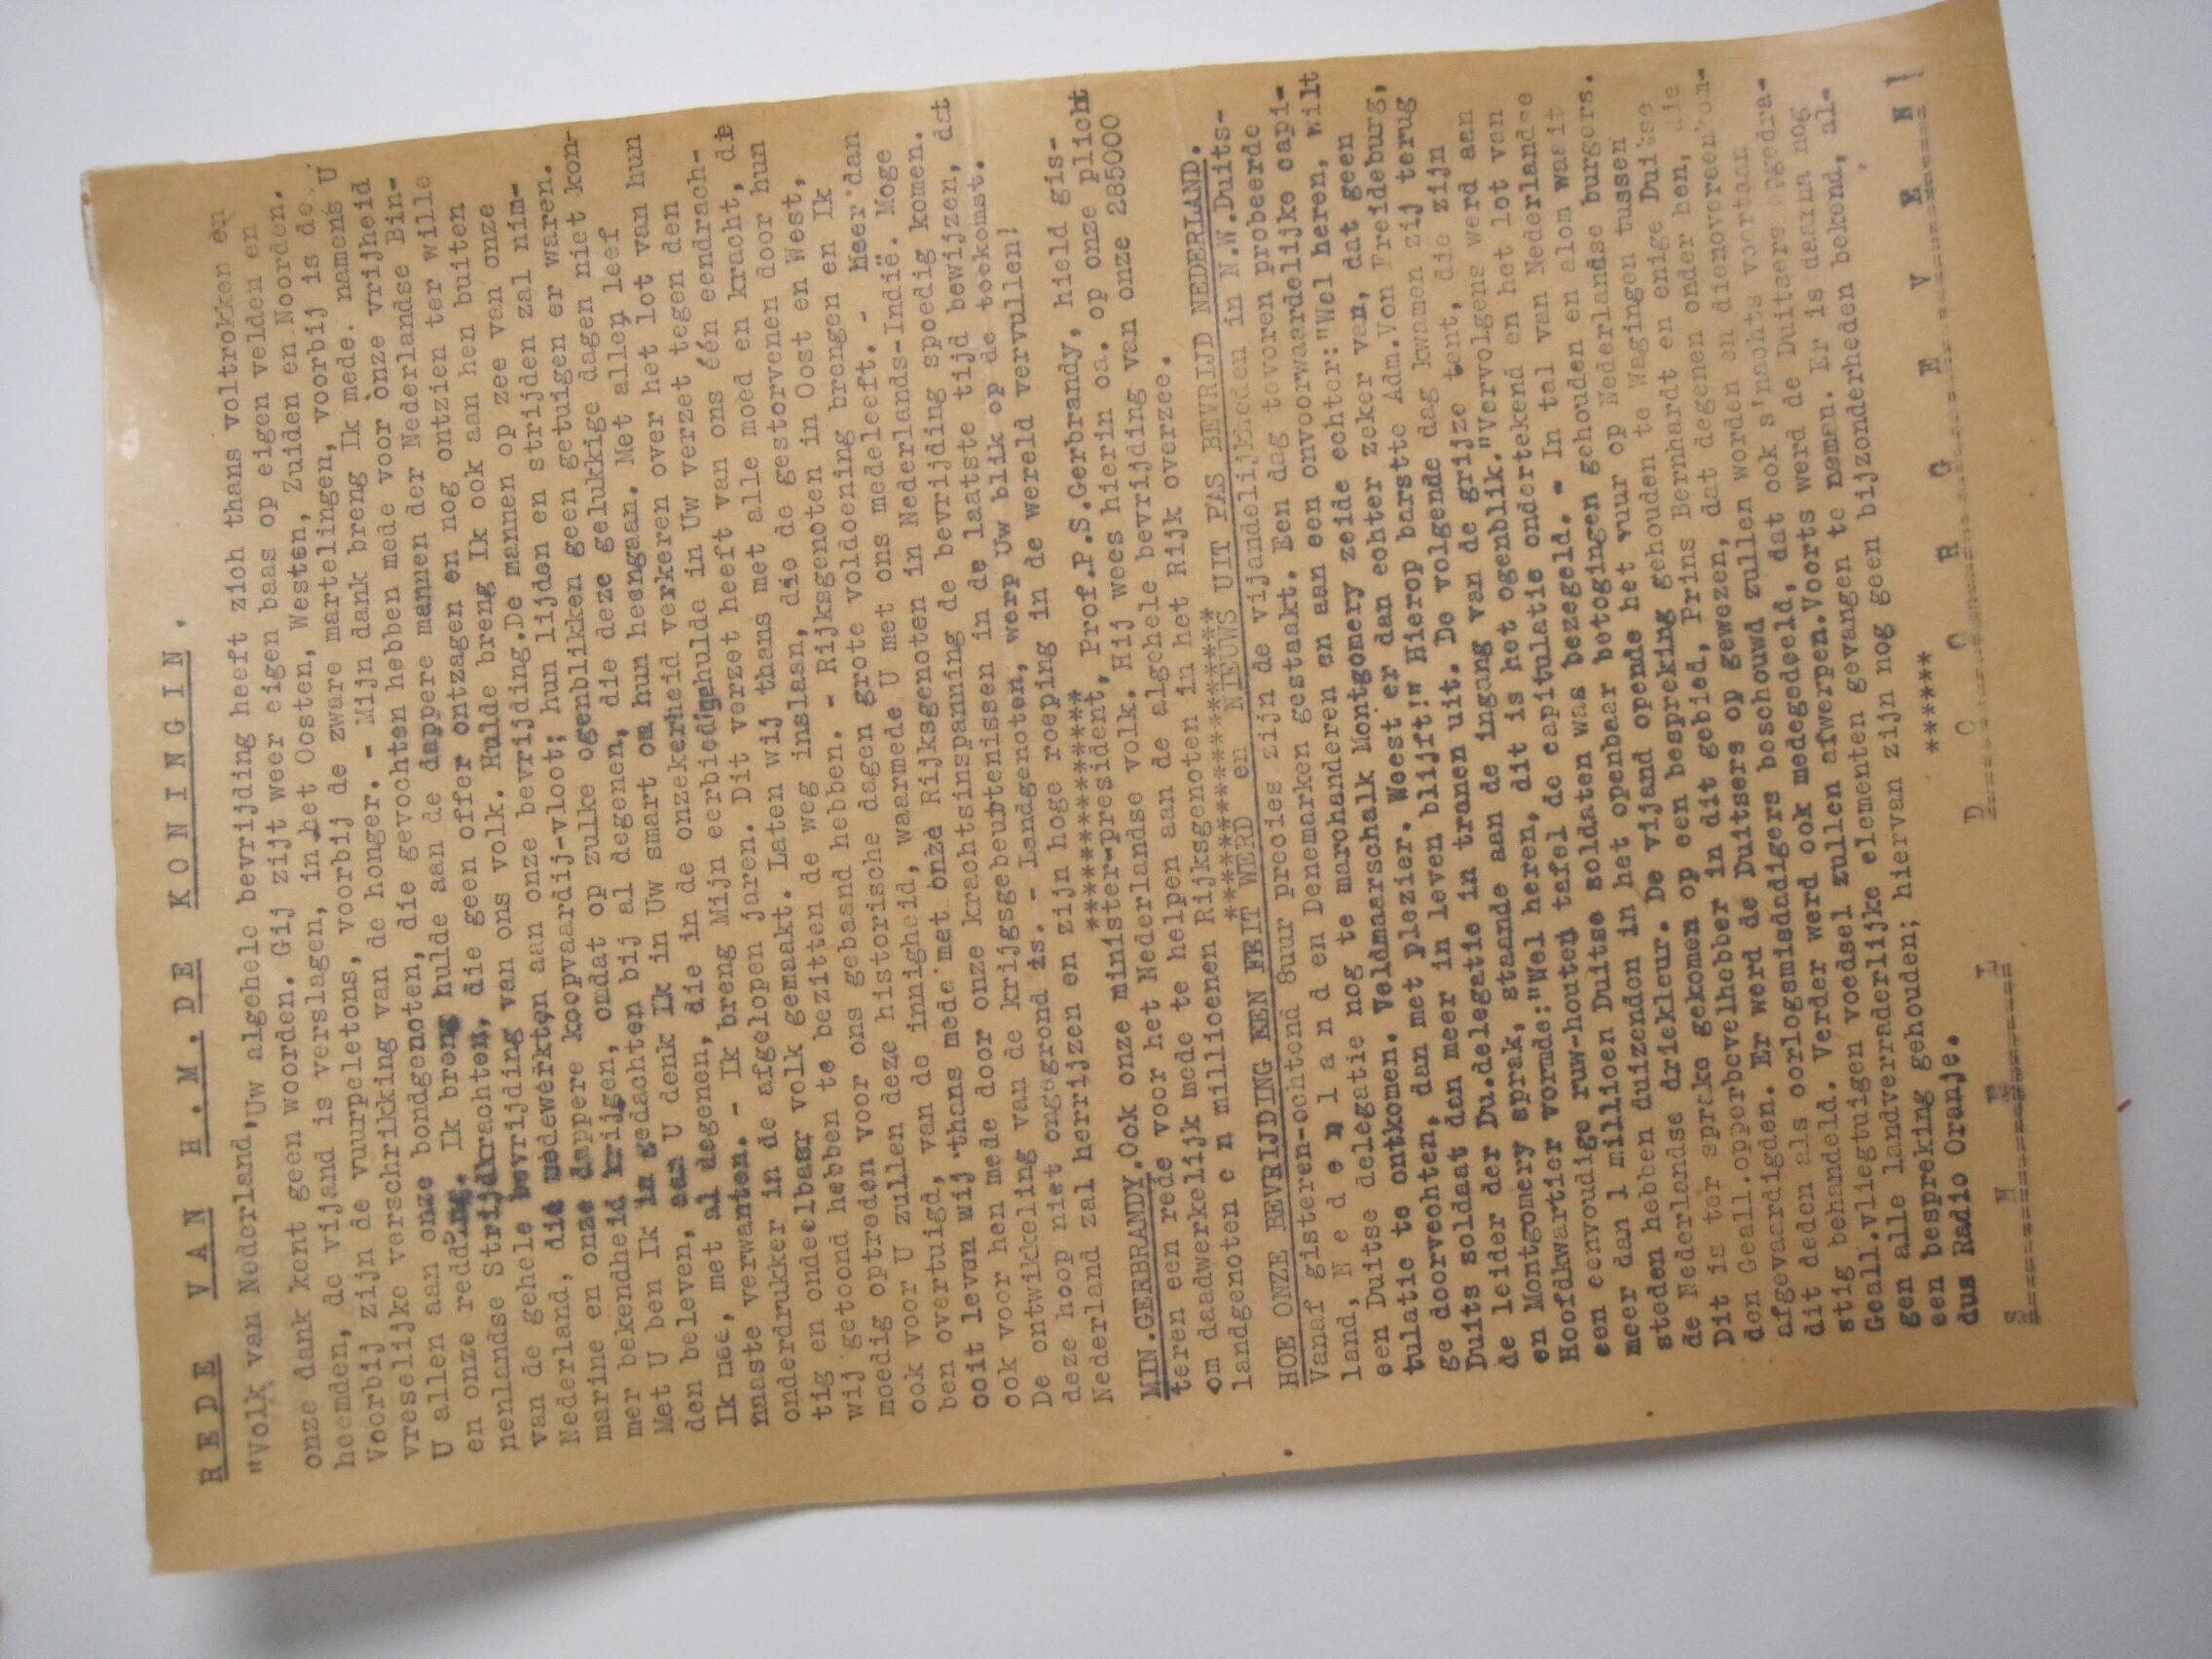 REDE VAN H.M. DE KONINGIN.
"Volk van Nederland,Uw algehele bevrijding heeft zich thans voltrokken en
onze dank kent geen woorden. Gij zijt weer eigen baas op eigen velden en
heemden, de vijand is verslagen, in het Oosten, Westen, Zuiden en Noorden.
Voorbij zijn de vuurpeletons, voorbij de zware martelingen, voorbij is de
vreselijke verschrikking van de honger. - Mijn dank breng Ik mede. namens U
U allen aan onze bondgenoten, die gevochten hebben mede voor onze vrijheid
en onze redding. Ik breng hulde aan de dappere mannen der Nederlandse Bin-
nenlandse Strijdkrachten, die geen offer ontzagen en nog ontzien ter wille
van de gehele bevrijding van ons volk. Hulde breng Ik ook aan hen buiten
Nederland, die medewerkten aan onze bevrijding.De mannen op zee van onze
marine en onze dappere koopvaardij-vloot; hun lijden en strijden zal nim-
mer bekendheid krijgen, omdat op zulke ogenblikken geen getuigen er waren.
Met U ben Ik in gedachten bij al degenen, die deze gelukkige dagen niet kon-
den beleven, aan U denk Ik in Uw smart om hun heengaan. Met allen leef
Ik mee, met al degenen, die in de onzekerheid verkeren over het lot van hun
naaste verwanten. - Ik breng Mijn eerbiedighulde in Uw verzet tegen den
onderdrukker in de afgelopen jaren. Dit verzet heeft van ons één eendrach-
tig en ondeelbaar volk gemaakt. Laten wij thans met alle moed en kracht, die
wij getoond hebben te bezitten de weg inslaan, die de gestorvenen door hun
moedig optreden voor ons gebaand hebben. - Rijksgenoten in Oost en West,
ook voor U zullen deze historische dagen grote voldoening brengen en Ik
ben overtuigd, van de innigheid, waarmede U met ons medeleeft. - Meer dan
ooit leven wij thans mede met onze Rijksgenoten in Nederlands-Indië. Moge
ook voor hen mede door onze krachtsinspanning de bevrijding spoedig komen.
De ontwikkeling van de krijgsgebeurtenissen in de laatste tijd bewijzen, dat
deze hoop niet ongegrond is. - Landgenoten, werp Uw blik op de toekomst.
Nederland zal herrijzen en zijn hoge roeping in de wereld vervullen!
*****************
MIN.GERBRANDY.Ook onze minister-president, Prof.P.S.Gerbrandy, hield gis-
teren een rede voor het Nederlandse volk. Hij wees hierin oa. op onze plicht
om daadwerkelijk mede te helpen aan de algehele bevrijding van onze 285000
landgenoten en millioenen Rijksgenoten in het Rijk overzee.
***********************
HOE ONZE BEVRIJDING EEN FEIT WERD en NIEUWS UIT PAS BEVRIJD NEDERLAND.
Vanaf gisteren-ochtend 8uur precies zijn de vijandelijkheden in N.W.Duits-
land, N e d e r l a n d en Denemarken gestaakt. Een dag tevoren probeerde
een Duitse delegatie nog te marchanderen en aan een onvoorwaardelijke capi-
tulatie te ontkomen. Veldmaarschalk Montgomery zeide echter:"Wel heren, wilt
ge doorvechten, dan met plezier. Weest er dan echter zeker van, dat geen
Duits soldaat den meer in leven blijft!" Hierop barstte Adm.Von Freideburg,
de leider der Du.delegatie in tranen uit. De volgende dag kwamen zij terug
en Montgomery sprak, staande aan de ingang van de grijze tent, die zijn
Hoofdkwartier vormde:"Wel heren, dit is het ogenblik."Vervolgens werd aan
een eenvoudige ruw-houten tafel de capitulatie ondertekend en het lot van
meer dan 1 millioen Duitse soldaten was bezegeld. - In tal van Nederlandse
steden hebben duizenden in het openbaar betogingen gehouden en alom waait
de Nederlandse driekleur. De vijand opende het vuur op Nederlandse burgers.
Dit is ter sprake gekomen op een bespreking gehouden te Wagingen tussen
den Geall.opperbevelhebber in dit gebied, Prins Bernhardt en enige Duitse
afgevaardigden. Er werd de Duitsers op gewezen, dat degenen onder hen, die
dit deden als oorlogsmisdadigers beschouwd zullen worden en dienovereenkom-
stig behandeld. Verder werd ook medegedeeld, dat ook s'nachts voortaan
Geall.vliegtuigen voedsel zullen afwerpen.Voorts werd de Duitsers opgedra-
gen alle landverraderlijke elementen gevangen te nemen. Er is daarna nog
een bespreking gehouden; hiervan zijn nog geen bijzonderheden bekend, al-
dus Radio Oranje.
******
S N E L D O O R G E V E N !